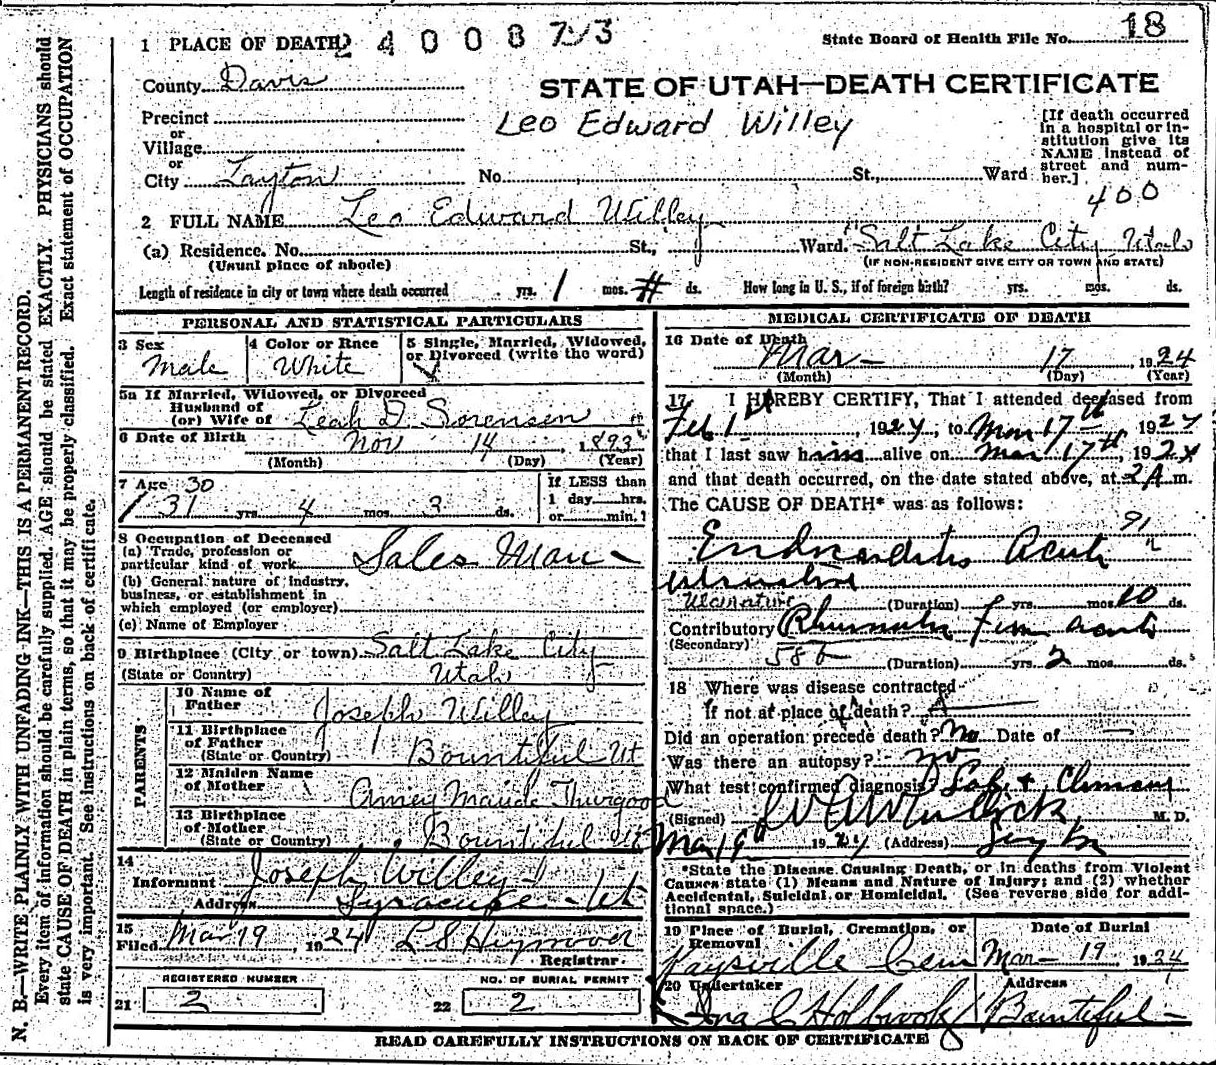 1 PLACE OF DEATH 2 4 0 0 8 7 3
State Board of Health File No. 18
County Davis
STATE OF UTAH—DEATH CERTIFICATE
Precinct
Leo Edward Willey
or
Village
or
City Layton No. St., Ward
[If death occurred
in a hospital or in-
stitution give its
NAME instead of
street and num-
ber.]
400
2 FULL NAME Leo Edward Willey
(a) Residence. No. St., Ward. Salt Lake City Utah
(Usual place of abode) (IF NON-RESIDENT GIVE CITY OR TOWN AND STATE)
Length of residence in city or town where death occurred yrs. 1 mos. # ds. How long in U. S., if of foreign birth? yrs. mos. ds.
PERSONAL AND STATISTICAL PARTICULARS
3 Sex
Male
4 Color or Race
White
5 Single, Married, Widowed,
or Divorced (write the word)
5a If Married, Widowed, or Divorced
Husband of
(or) Wife of Leah D. Sorensen
6 Date of Birth Nov 14 1893
(Month) (Day) (Year)
7 Age 30
31 yrs. 4 mos. 3 ds.
If LESS than
1 day hrs.
or min.?
8 Occupation of Deceased
(a) Trade, profession or
particular kind of work Sales Man
(b) General nature of industry,
business, or establishment in
which employed (or employer)
(c) Name of Employer
9 Birthplace (City or town) Salt Lake City
(State or Country) Utah
PARENTS
10 Name of
Father Joseph Willey
11 Birthplace
of Father
(State or Country) Bountiful Ut
12 Maiden Name
of Mother Amey Maude Thurgood
13 Birthplace
of Mother
(State or Country) Bountiful Ut
14
Informant Joseph Willey
Address Syracuse - Ut
15
Filed Mar 19, 1924 L S Heywood
Registrar.
REGISTERED NUMBER NO. OF BURIAL PERMIT
21 2 22 2
MEDICAL CERTIFICATE OF DEATH
16 Date of Death
Mar 17 1924
(Month) (Day) (Year)
17 I HEREBY CERTIFY, That I attended deceased from
Feb 1st, 1924, to Mar 17th 1924
that I last saw him alive on Mar 17th, 1924
and that death occurred, on the date stated above, at 2 A m.
The CAUSE OF DEATH* was as follows:
91
Endocarditis Acute
Ulcerative (Duration) yrs. mos. 10 ds.
Contributory Rheumatic Fever acute
(Secondary)
(Duration) yrs. 2 mos. ds.
18 Where was disease contracted
If not at place of death?
Did an operation precede death? No Date of —
Was there an autopsy? no
What test confirmed diagnosis?
(Signed) M. D.
Mar 19th 1924 (Address) Layton
*State the Disease Causing Death, or in deaths from Violent
Causes state (1) Means and Nature of Injury; and (2) whether
Accidental, Suicidal or Homicidal. (See reverse side for addi-
tional space.)
19 Place of Burial, Cremation, or
Removal
Date of Burial
Kaysville Cem Mar 19 1924
20 Undertaker Address
Ina C Holbrook Bountiful
READ CAREFULLY INSTRUCTIONS ON BACK OF CERTIFICATE
N. B.—WRITE PLAINLY WITH UNFADING INK—THIS IS A PERMANENT RECORD.
Every item of information should be carefully supplied. AGE should be stated EXACTLY. PHYSICIANS should
state CAUSE OF DEATH in plain terms, so that it may be properly classified. Exact statement of OCCUPATION
is very important. See instructions on back of certificate.